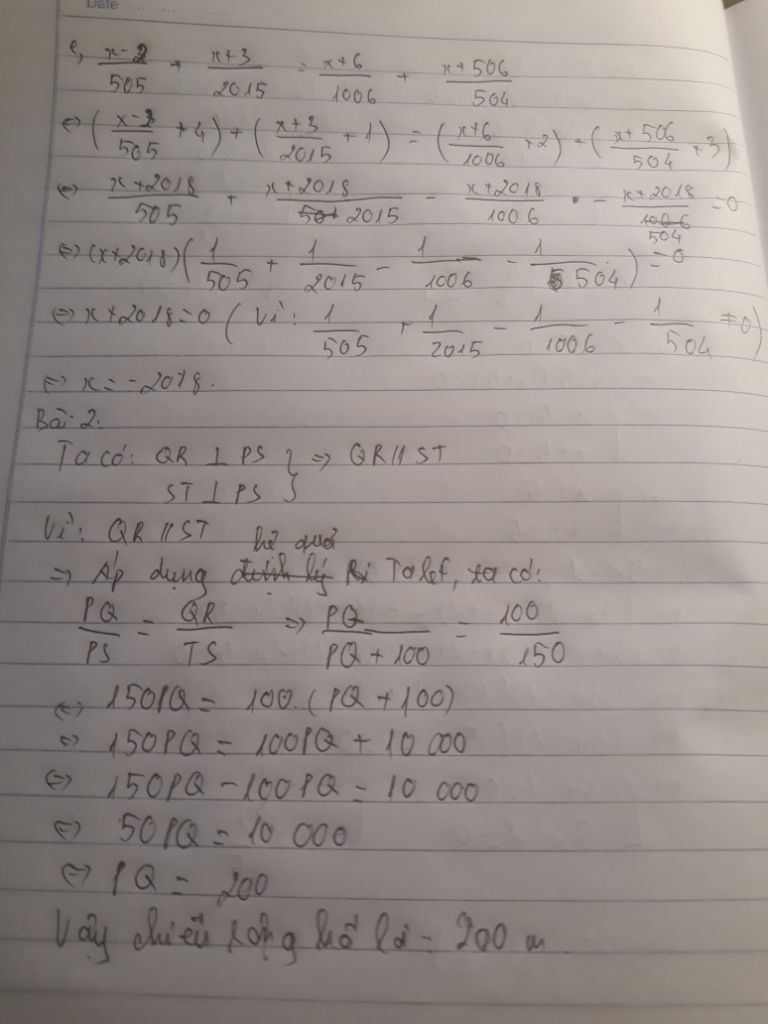 Date
e, x-2/505 + x+3/2015 = x+6/1006 + x+506/504
⇔ (x-2/505 + 4) + (x+3/2015 + 1) = (x+6/1006 + 2) + (x+506/504 + 3)
⇔ x+2018/505 + x+2018/2015 - x+2018/1006 - x+2018/504 = 0
⇔ (x+2018)(1/505 + 1/2015 - 1/1006 - 1/504) = 0
⇔ x+2018=0 (Vì: 1/505 + 1/2015 - 1/1006 - 1/504 ≠0)
⇔ x = -2018.
Bài 2.
Ta có: QR ⊥ PS } ⇒ QR // ST
ST ⊥ PS }
Vì: QR // ST
⇒ Áp dụng hệ quả Talet, ta có:
PQ/PS = QR/TS ⇒ PQ/PQ + 100 = 100/150
⇔ 150PQ = 100.(PQ + 100)
⇔ 150PQ = 100PQ + 10 000
⇔ 150PQ - 100PQ = 10 000
⇔ 50PQ = 10 000
⇔ PQ = 200
Vậy chiều rộng hồ là = 200 m